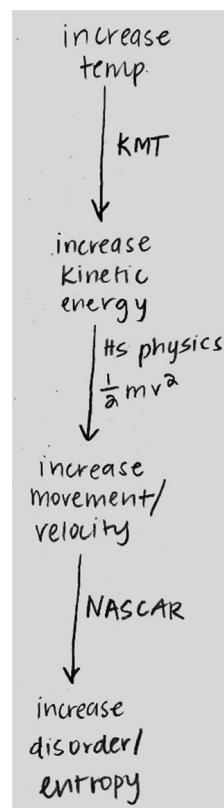 increase
temp.
KMT
increase
kinetic
energy
HS physics
1/2 mv²
increase
movement/
velocity
NASCAR
increase
disorder/
entropy